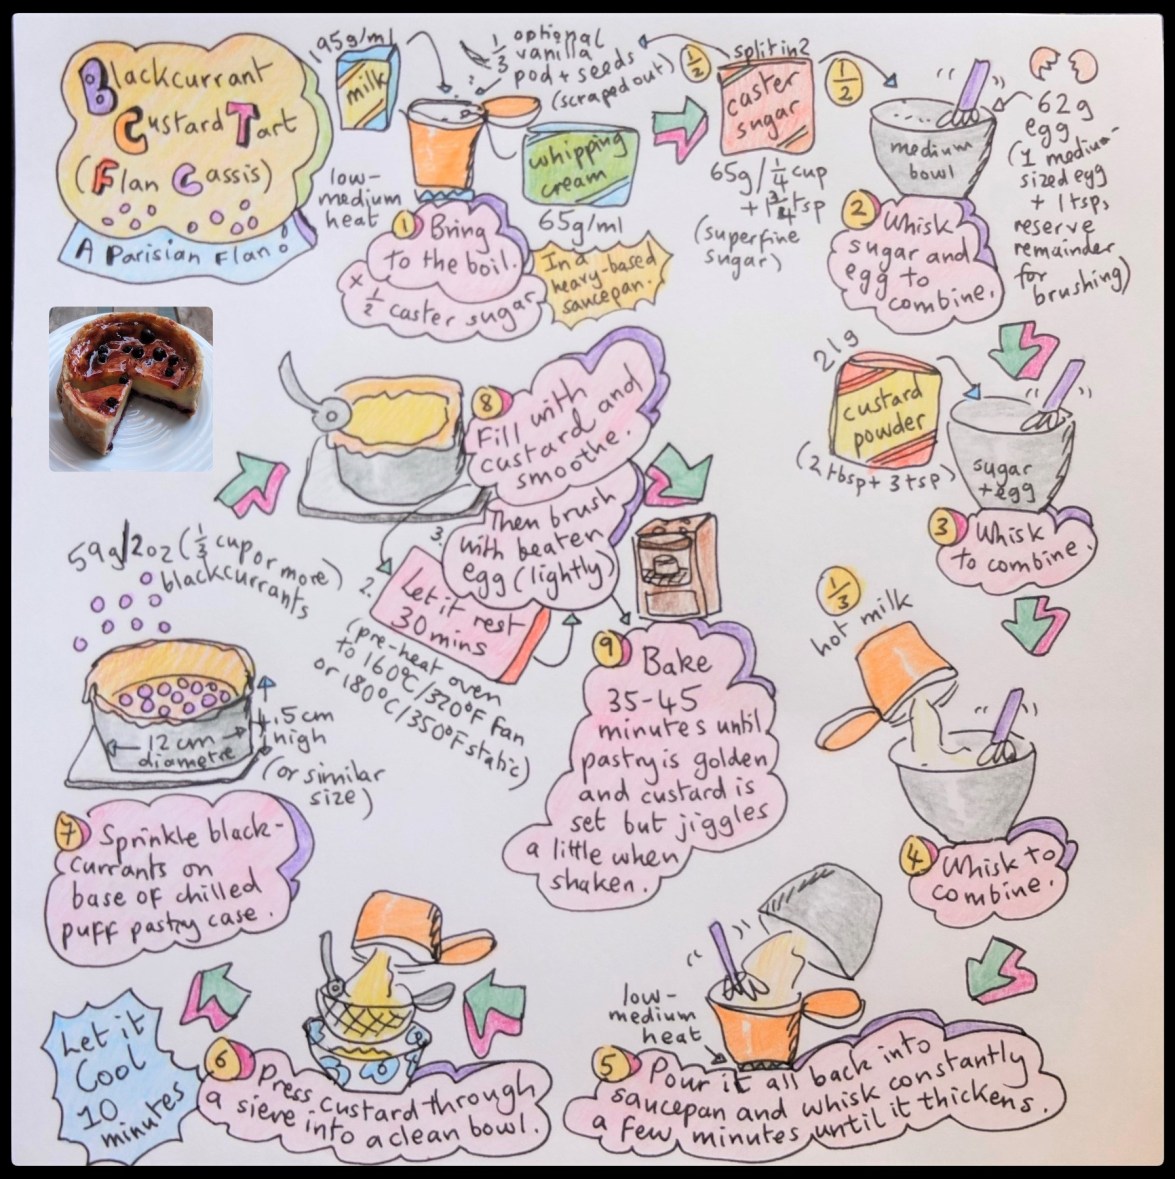 Blackcurrant
Custard Tart
(Flan Cassis)
A Parisian Flan!
195g/ml
milk
1/3 optional
vanilla
pod + seeds
(scraped out)
low-
medium
heat
whipping
cream
65g/ml
1 Bring
to the boil.
× 1/2 caster sugar
In a
heavy-based
saucepan.
1/2
split in 2
1/2
caster
sugar
65g/1/4 cup
+ 1 3/4 tsp
(superfine
sugar)
medium
bowl
62g
egg
(1 medium-
sized egg
+ 1 tsp,
reserve
remainder
for
brushing)
2 Whisk
sugar and
egg to
combine.
21g
custard
powder
(2 tbsp + 3 tsp)
sugar
+ egg
3 Whisk
to combine.
1/3
hot milk
4 Whisk to
combine.
low-
medium
heat
5 Pour it all back into
saucepan and whisk constantly
a few minutes until it thickens.
6 Press custard through
a sieve into a clean bowl.
Let it
Cool
10
minutes
59g/2oz (1/3 cup or more)
blackcurrants
12 cm
diametre
4.5cm
high
(or similar
size)
7 Sprinkle black-
currants on
base of chilled
puff pastry case.
8 Fill with
custard and
smoothe.
3. Then brush
with beaten
egg (lightly)
2. Let it rest
30 mins
(pre-heat oven
to 160°C/320°F fan
or 180°C/350°F static)
9 Bake
35-45
minutes until
pastry is golden
and custard is
set but jiggles
a little when
shaken.